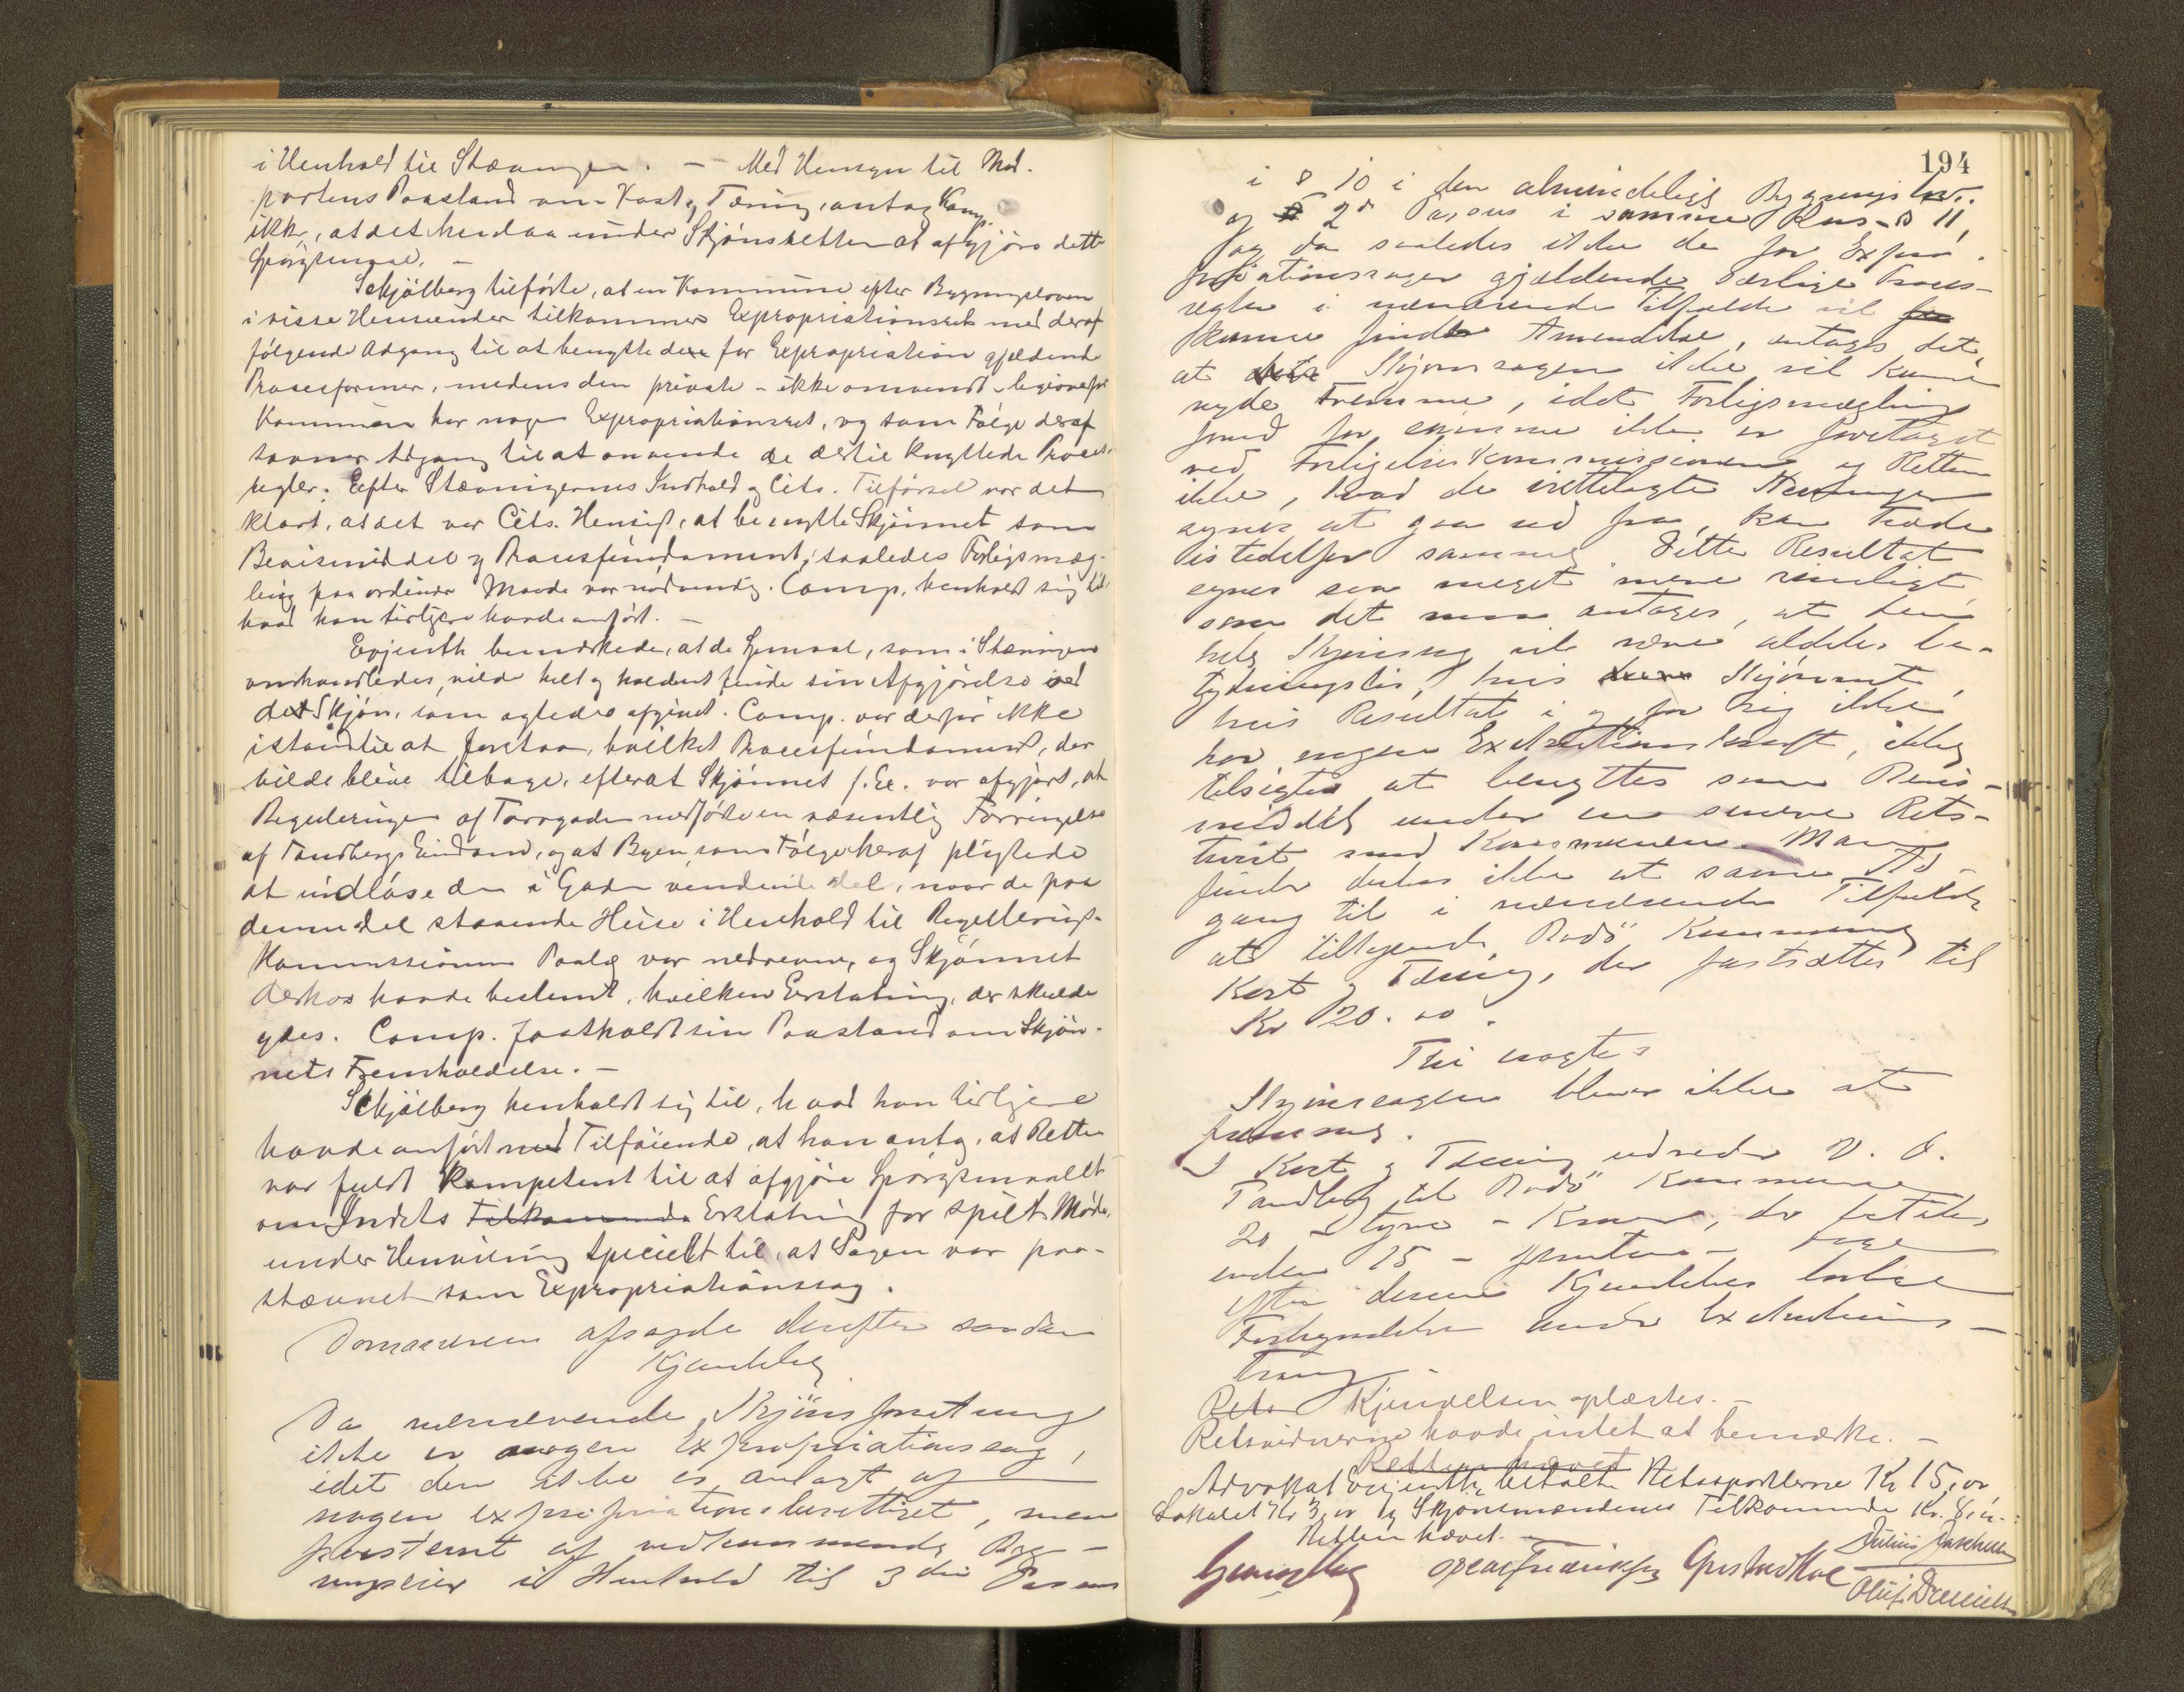 i Henhold til Stævningen. — Med Hensyn til Mod-
partens Paastand om Kost og Tæring, antog Comp.
ikke, at det henlaa under Skjønsretten at afgjøre dette
Spørgsmaal. —
Schjølberg tilførte, at en Kommune efter Bygningsloven
i visse Henseender tilkommer Expropriationsret med deraf
følgende Adgang til at benytte de for Expropriation gjældende
Procesformer, medens den private – ikke omvendt – ligeoverfor
Kommunen har nogen Expropriationsret, og som Følge deraf
savner Adgang til at anvende de dertil knyttede Proces-
regler. Efter Stævningernes Indhold og Cits. Tilførsel var det
klart, at det var Cits. Hensigt, at benytte Skjønnet som
Bevismiddel og Procesfundament, saaledes Forligsmæg-
ling paa ordinær Maade var nødvendig. Comp. henholdt sig til
hvad han tidligere havde anført. —
Evjenth bemærkede, at de Spmaal, som i Stævningen
omhandledes, vilde helt og holdent finde sin Afgjørelse ved
det Skjøn, som agtedes afgivet. Comp. var derfor ikke
istand til at forstaa, hvilket Procesfundament, der
vilde blive tilbage, efterat Skjønnet f. Ex. var afgjort, at
Reguleringen af Torvgaden medførte en væsentlig Forringelse
af Tandbergs Eiendom, og at Byen som Følge heraf pligtede
at indløse den i Gaden vendende Del, naar de paa
denne Del staaende Huse i Henhold til Regulerings-
Kommissionens Paalæg var nedrevne, og Skjønnet
derhos havde bestemt, hvilken Erstatning, der skulde
ydes. Comp. fastholdt sin Paastand om Skjøn-
nets Fremholdelse. —
Schjølberg henholdt sig til, hvad han tidligere
havde anført med Tilføiende, at han antog, at Retten
var fuldt kompetent til at afgjøre Spørgsmaalet
om Indets Tilkommende Erstatning for spildt Møde,
under Henvisning specielt til, at Sagen var paa-
stævnet som Expropriationssag.
Domareren afsagde derefter saadan
Kjendelse
Da nærværende Skjønsforretning
ikke er nogen Expropriationssag,
idet den ikke er anlagt af
nogen expropriationsberettiget, men
paastevnt af vedkommende Byg-
ningseier i Henhold til 3die Passus
194
i § 10 i den almindelige Bygningslov
og 2den Passus i samme Lovs § 11,
og da saaledes ikke de for Expro-
priationssager gjældende særlige Proces-
regler i nærværende Tilfælde vil
kunne finde Anvendelse, antages det,
at Skjønssagen ikke vil kunne
nyde Fremme, idet Forligsmægling
forud for samme ikke er foretaget
ved Forligelseskommissionen og Retten
ikke, hvad de irettelagte Stevninger
synes at gaa ud fra, kan træde
istedetfor samme. Dette Resultat
synes saa meget mere rimeligt
som det maa antages, at den
hele Skjønssag vil være aldeles be-
tydningsløs, hvis Skjønnet,
hvis Resultat i og for sig ikke
har nogen Exekutionskraft, ikke
tilsigtes at benyttes som Bevis-
middel under en senere Rets-
tvist med Kommunen. Man
finder derhos ikke at savne Ad-
gang til i nærværende Tilfælde
at tilkjende Bodø Kommune
Kost og Tæring, der fastsættes til
Kr 20.00.
Thi eragtes
Skjønssagen bliver ikke at
fremme.
I Kost og Tæring udreder V. O.
Tandberg til Bodø Kommune
20 – tyve – Kroner, der betales
inden 15 – femten – Dage
efter denne Kjendelses lovlige
Forkyndelse under Exekutions-
tvang
Rets Kjendelsen oplæstes. —
Retsvidnerne havde intet at bemærke. —
Retten hævet
Advokat Evjenth betalte Retssportlerne Kr 15,00
Lokalet Kr 3,00 og Skjønsmændenes Tilkommende Kr. 8,00.
Retten hævet. —
Gustav Moe